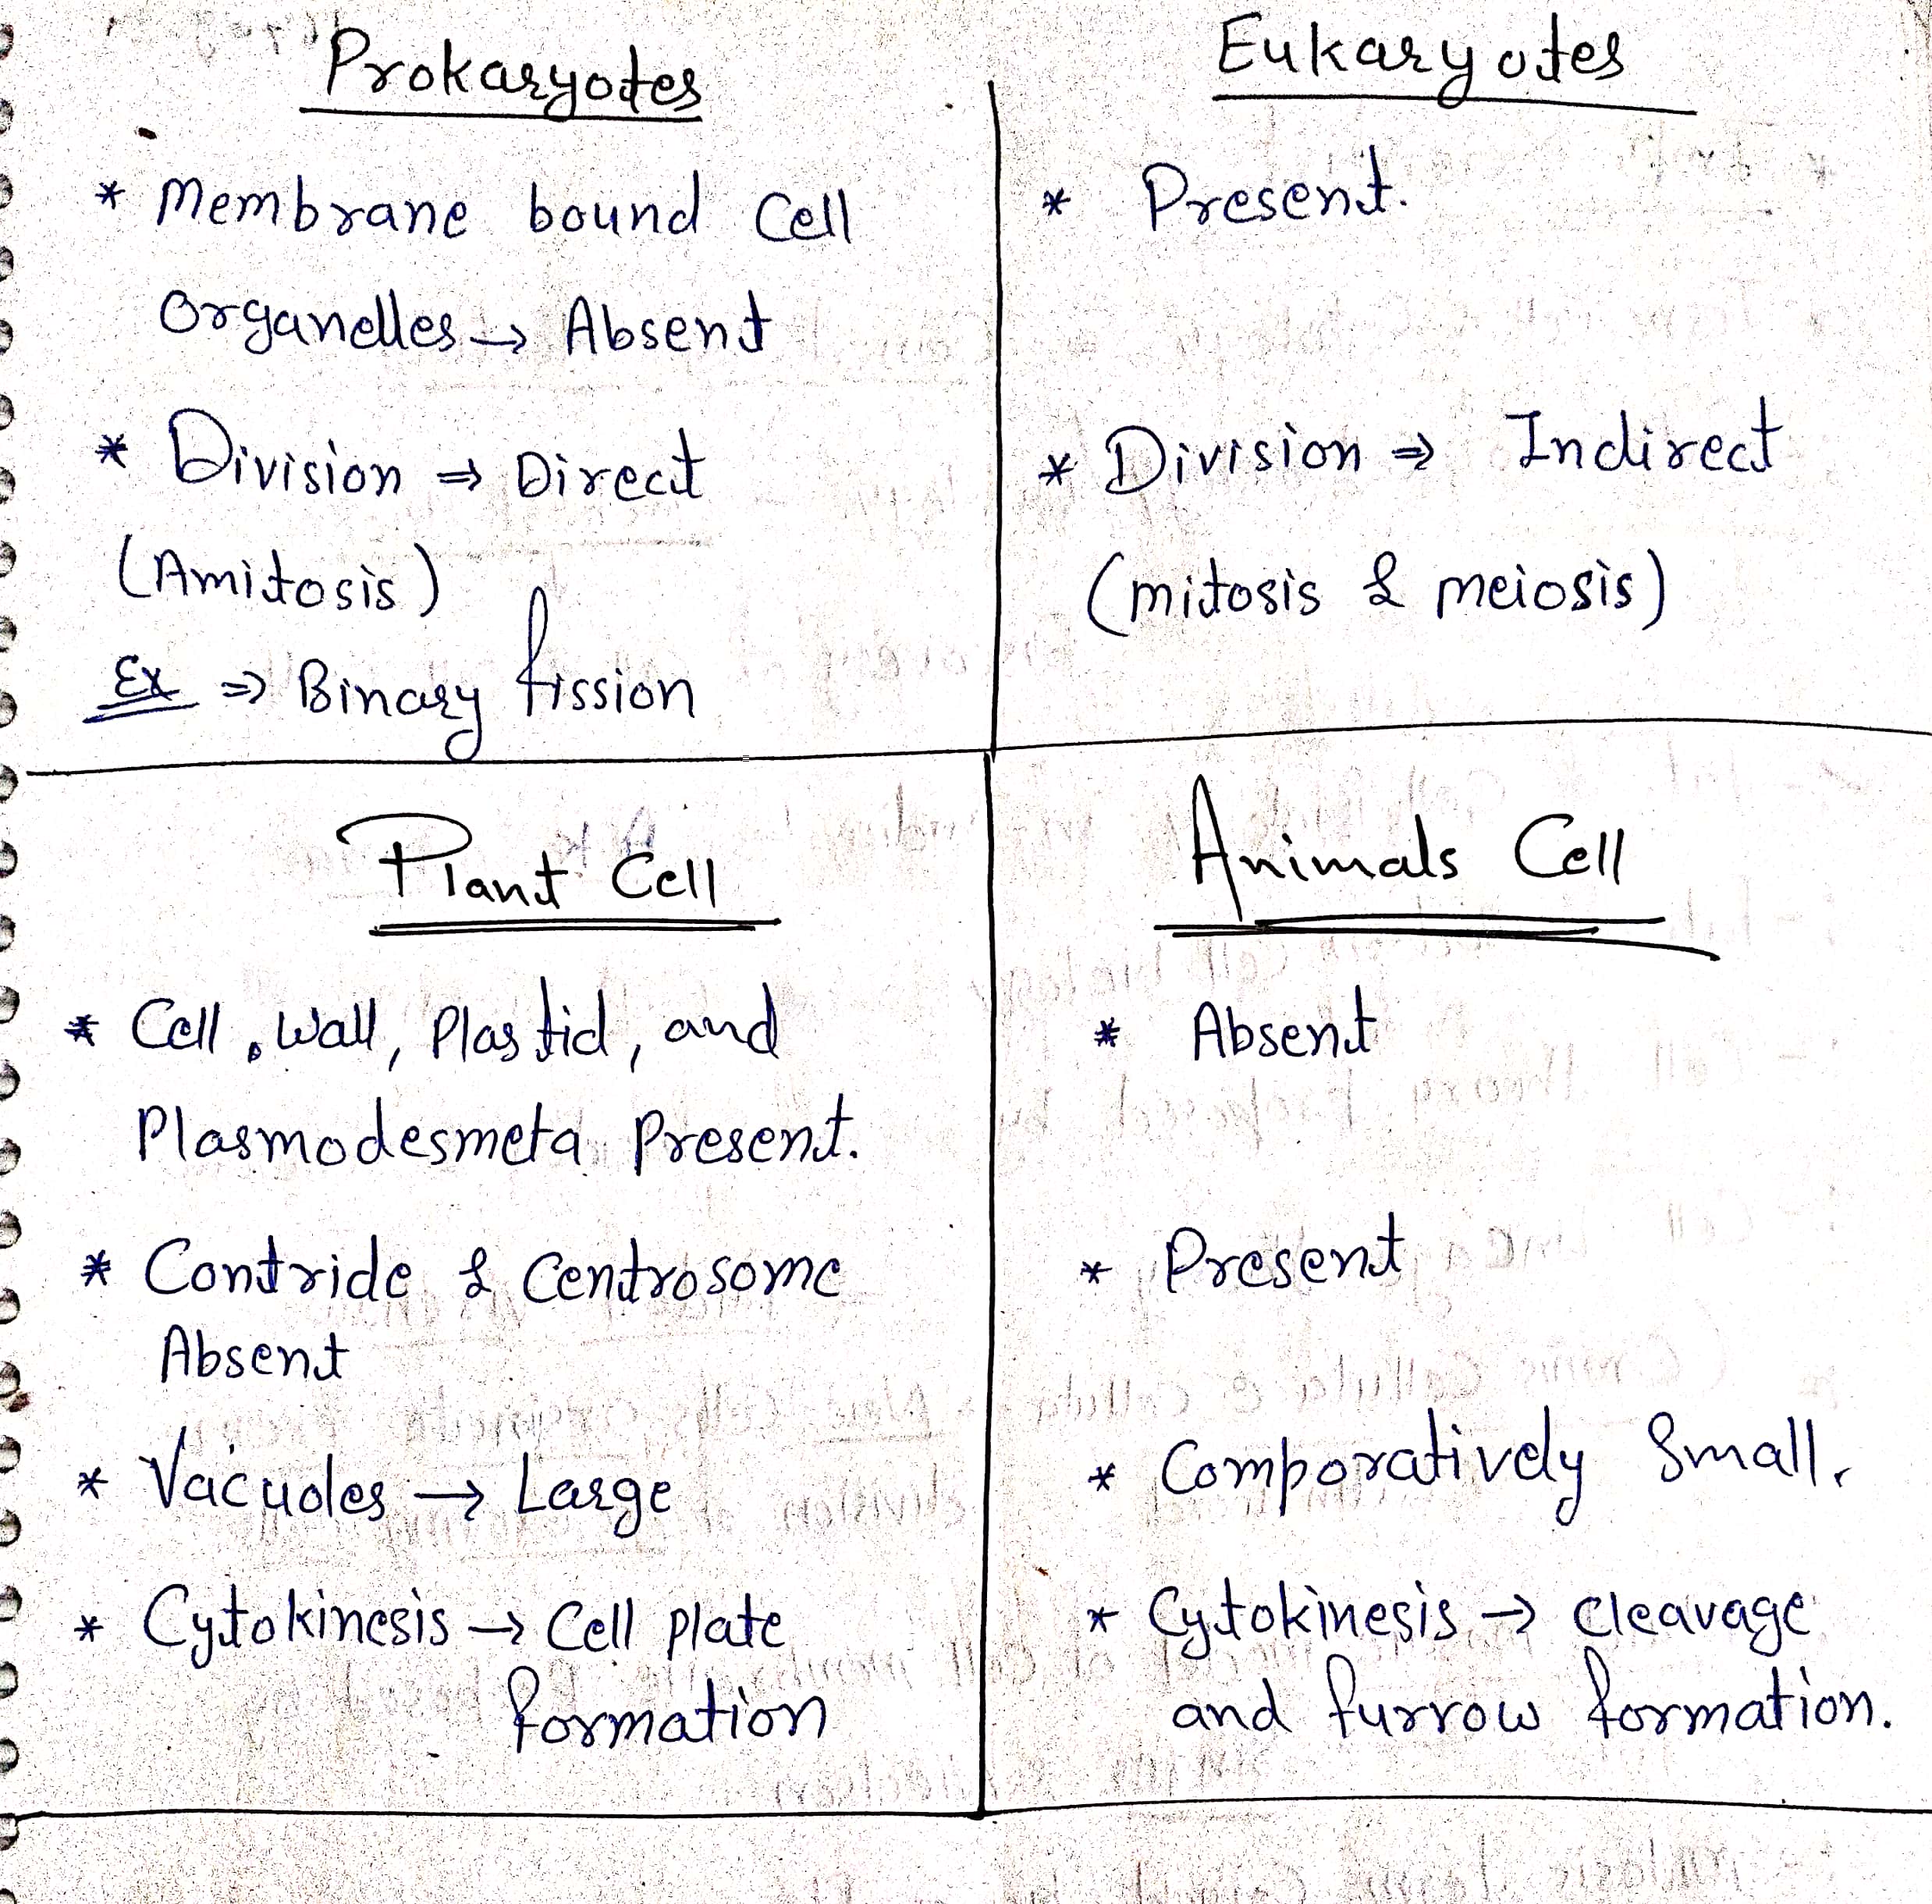 Prokaryotes
* Membrane bound Cell
Organelles → Absent
* Division ⇒ Direct
(Amitosis)
Ex ⇒ Binary fission
Eukaryotes
* Present.
* Division ⇒ Indirect
(mitosis & meiosis)
Plant Cell
* Cell, Wall, Plastid, and
Plasmodesmeta Present.
* Contride & Centrosome
Absent
* Vacuoles → Large
* Cytokinesis → Cell plate
formation
Animals Cell
* Absent
* Present
* Comporatively Small.
* Cytokinesis → cleavage
and furrow formation.